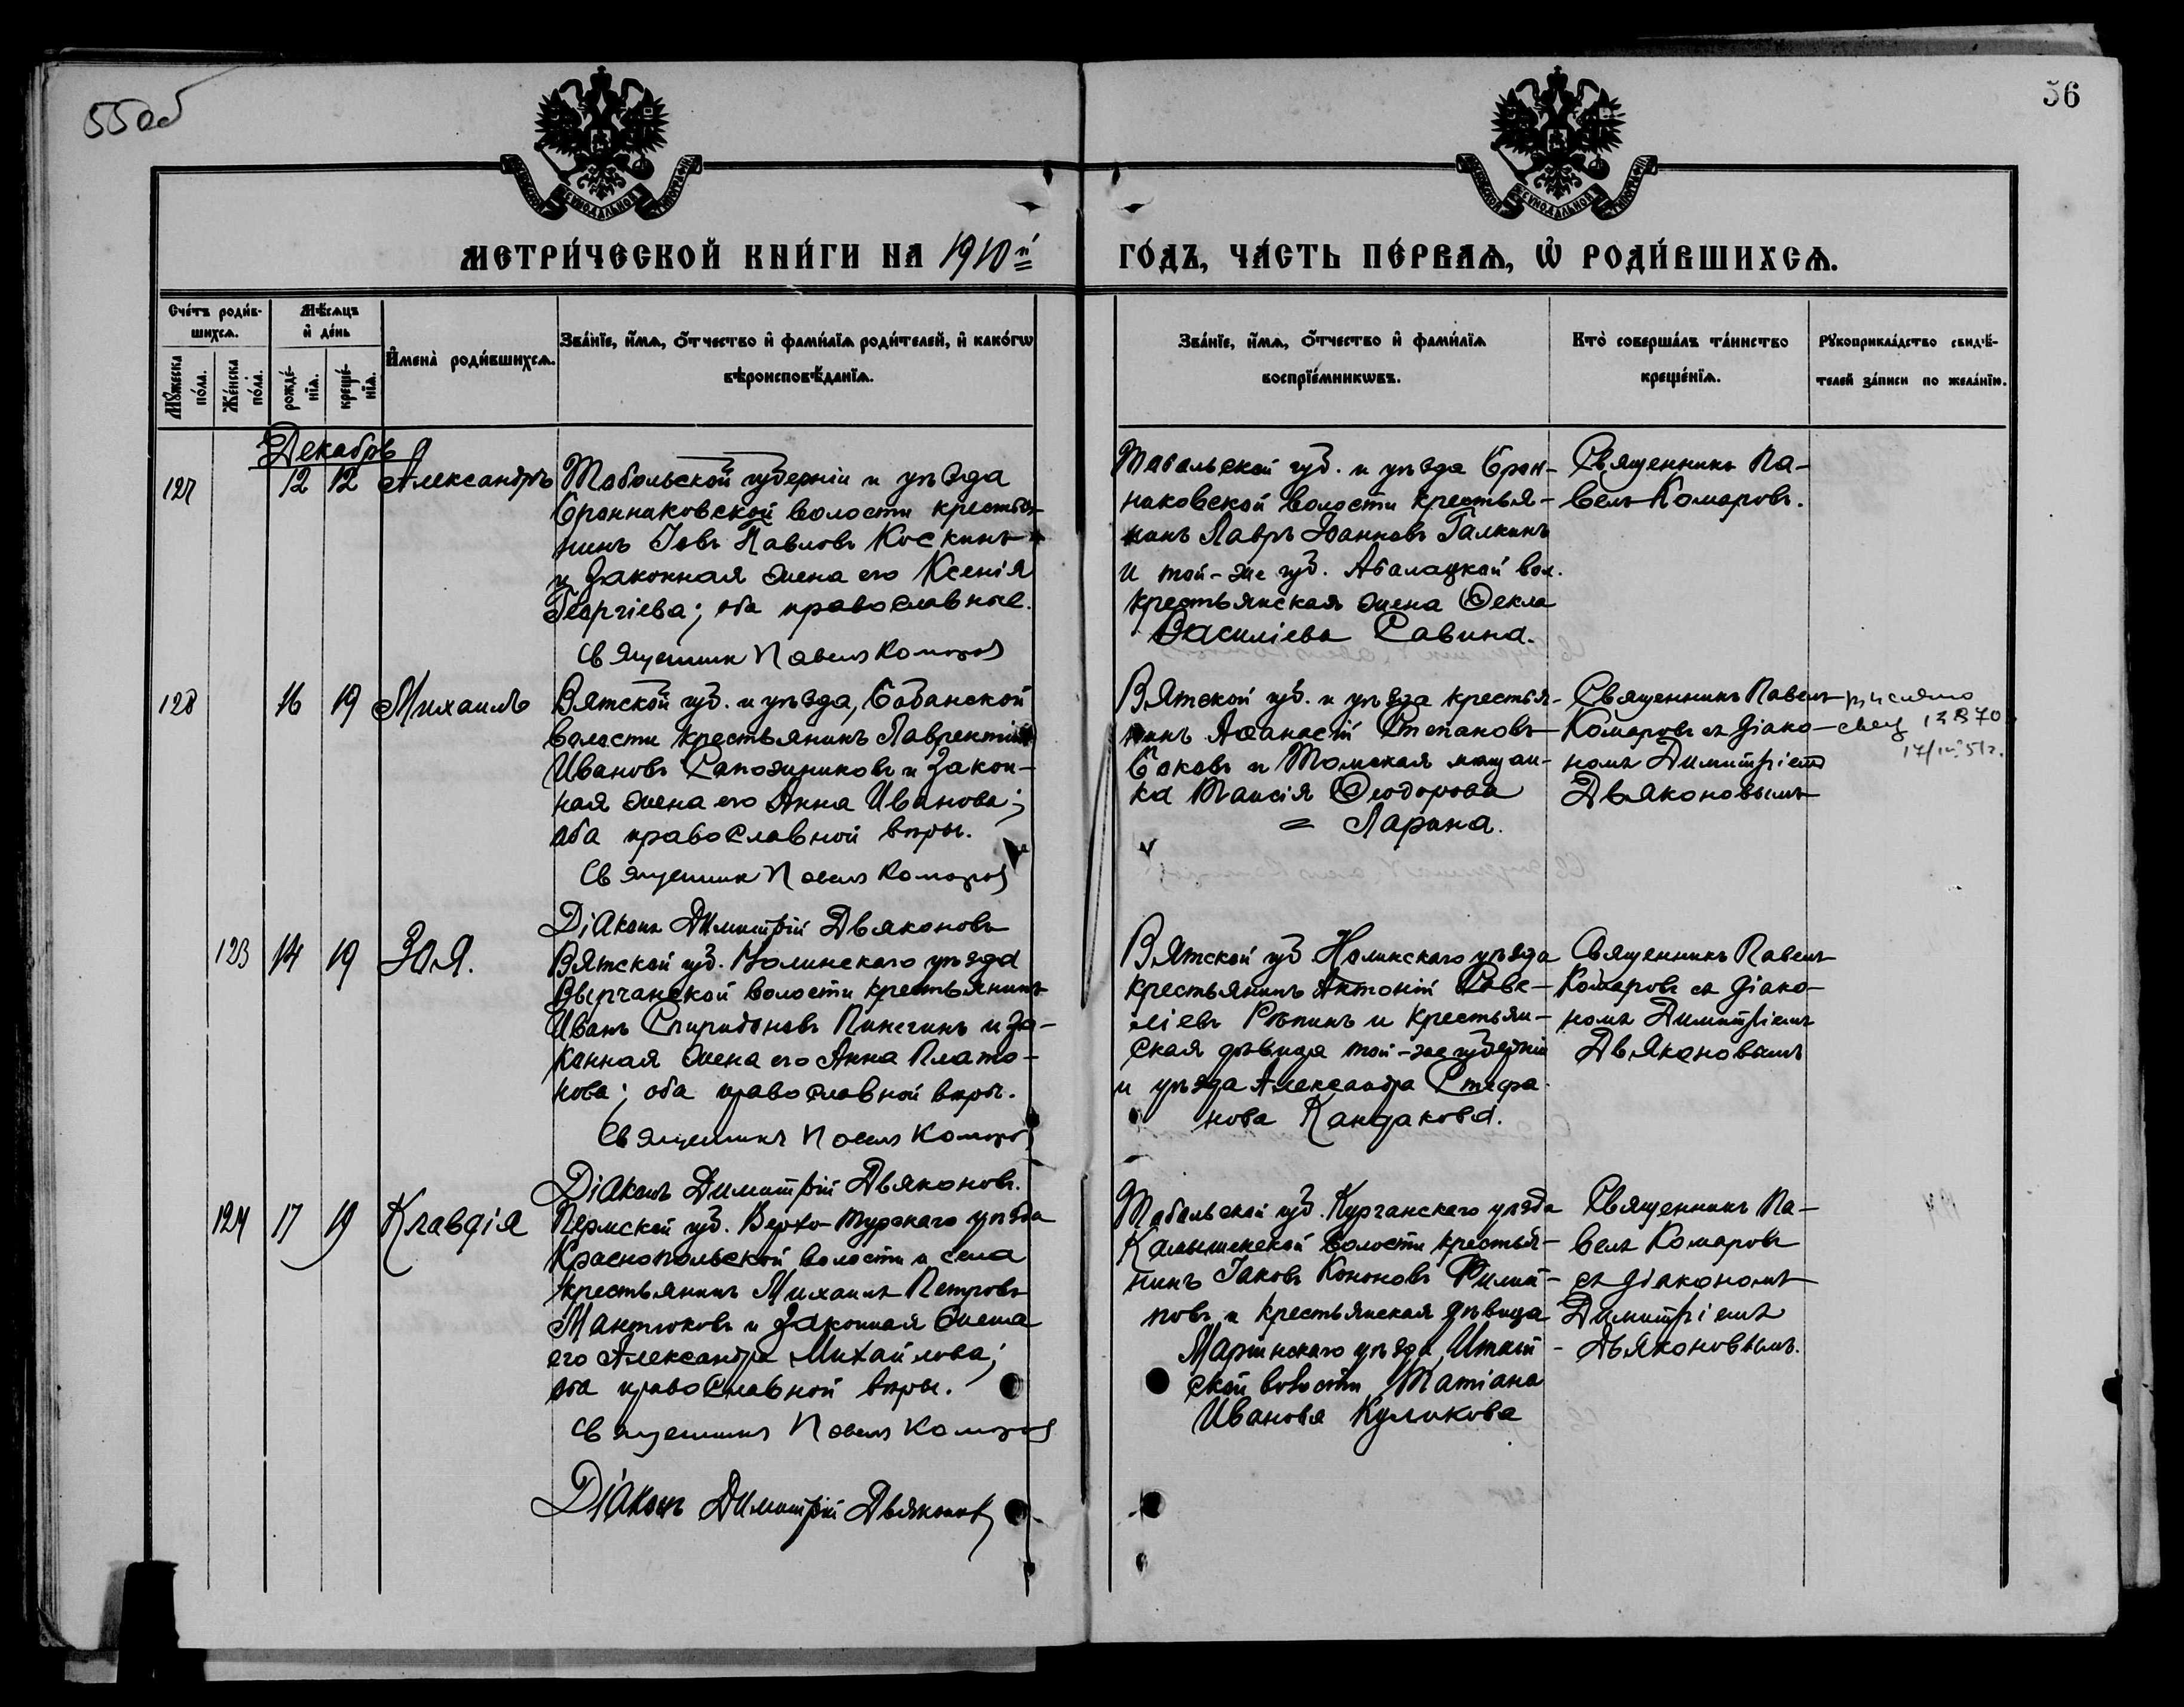 55об
56
МЕТРИ́ЧЕСКОЙ КНИ́ГИ НА 1910й
ГО́ДЪ, ЧА́СТЬ ПЕ́РВАѦ, Ѡ҆ РОДИ́ВШИХСѦ.
Сче́тъ роди́в-
шихсѧ.
Мѣ́сѧцъ
и҆ де́нь
И҆мена̀ роди́вшихсѧ.
Зва́нїе, и҆́мѧ, ѻ҆́тчество и҆ фами́лїѧ роди́телей, и҆ како́гѡ
вѣроисповѣ́данїѧ.
Мꙋ́жеска
по́ла.
Же́нска
по́ла.
рожде́-
нїѧ.
креще́-
нїѧ.
Зва́нїе, и҆́мѧ, ѻ҆́тчество и҆ фами́лїѧ
воспрїе́мникѡвъ.
Кто̀ соверша́лъ та́инство
креще́нїѧ.
Рꙋкоприкла́дство свидѣ́-
телей за́писи по жела́нїю.
Декабрь
127 12 12 Александръ
Тобольской губерніи и уѣзда
Бронниковской волости крестья-
нинъ Іовъ Павловъ Коскинъ
и законная жена его Ксенія
Георгіева; оба православные.
Священник Павел Комаров
Тобольской губ. и уѣзда Брон-
никовской волости крестья-
нинъ Лавръ Іоанновъ Галкинъ
и той-же губ. Абалацкой вол.
крестьянская жена Ѳекла
Василіева Савина.
Священникъ Па-
велъ Комаровъ.
128 16 19 Михаилъ
Вятской губ. и уѣзда, Бобанской
волости крестьянинъ Лаврентій
Ивановъ Сапожниковъ и закон-
ная жена его Анна Иванова;
оба православной вѣры.
Священник Павел Комаров
Діаконъ Димитрій Дьяконовъ
Вятской губ. и уѣзда крестья-
нинъ Аѳанасій Степановъ
Боковъ и Томская мѣщан-
ка Таисія Ѳеодорова
= Ларина.
Священникъ Павелъ
Комаровъ съ діако-
номъ Димитріемъ
Дьяконовымъ
51г.
123 14 19 Зоя.
Вятской губ. Нолинскаго уѣзда
Вырчанской волости крестьянинъ
Иванъ Спиридоновъ Пинегинъ и за-
конная жена его Анна Плато-
нова; оба православной вѣры.
Священникъ Павел Комаров
Діаконъ Димитрій Дьяконовъ.
Вятской губ Нолинскаго уѣзда
крестьянинъ Антоній Саве-
ліевъ Рѣпинъ и крестьян-
ская дѣвица той-же губерніи
и уѣзда Александра Стефа-
нова Кандакова.
Священникъ Павелъ
Комаровъ съ діако-
номъ Димитріемъ
Дьяконовымъ
124 17 19 Клавдія
Пермской губ. Верхо-Турскаго уѣзда
Краснопольской волости и села
крестьянинъ Михаилъ Петровъ
Мантюковъ и законная жена
его Александра Михайлова;
оба православной вѣры.
Священникъ Павел Комаров
Діаконъ Димитрій Дьяконовъ
Тобольской губ. Курганскаго уѣзда
Камышенской волости крестья-
нинъ Іаковъ Кононовъ Филип-
повъ и крестьянская дѣвица
Маріинскаго уѣзда, Итат-
ской волости Татіана
Иванова Куликова
Священникъ Па-
велъ Комаровъ
съ діакономъ
Димитріемъ
Дьяконовымъ.